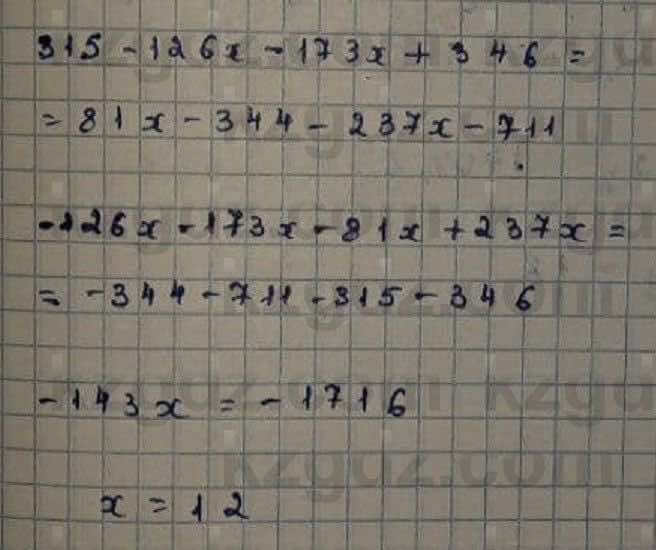 315 - 126x - 173x + 346 =
= 81x - 344 - 237x - 711
-126x - 173x - 81x + 237x =
= -344 - 711 - 315 - 346
-143x = -1716
x = 12
kzgdz.com